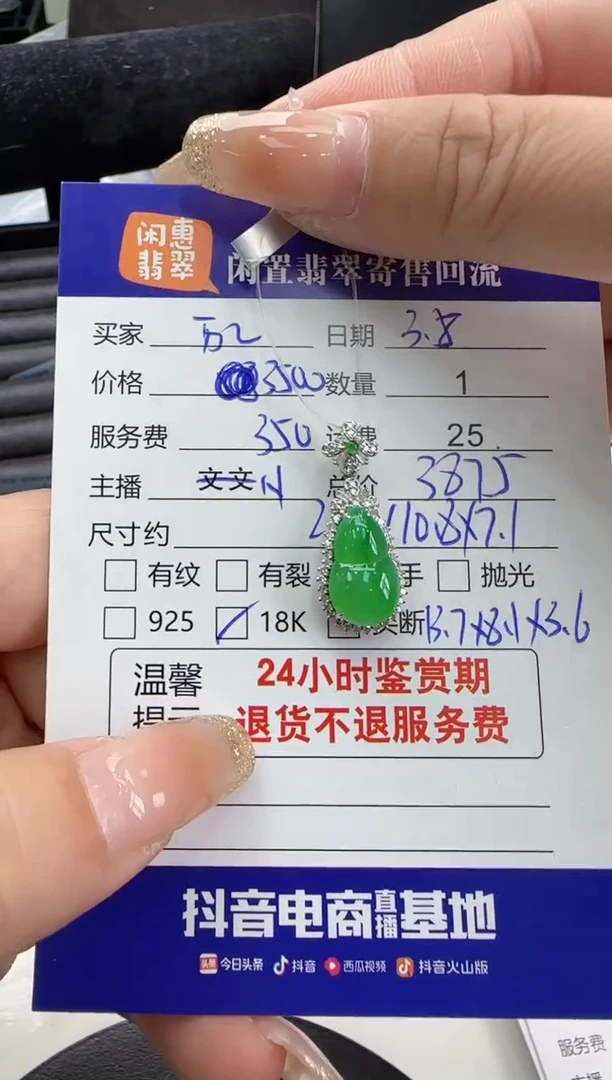 闲惠
翡翠
闲置翡翠寄售回流
买家 日期 3.8
价格 3500 数量 1
服务费 350 25
主播 文文 总价 3875
尺寸约 10.8X7.1
有纹 有裂 手 抛光
925 18K 买断 13.7X8.1X3.6
温馨 24小时鉴赏期
提示 退货不退服务费
抖音电商直播基地
头条 今日头条 抖音 西瓜视频 抖音火山版
服务费
主播